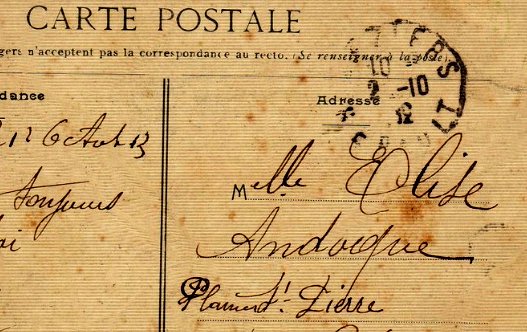 CARTE POSTALE
gers n'acceptent pas la correspondance au recto. (Se renseigner à la poste)
dance
Adresse
ZIERS
10
2 -10
12
toujours
oi
Mlle Elise
Andoque
St. Pierre